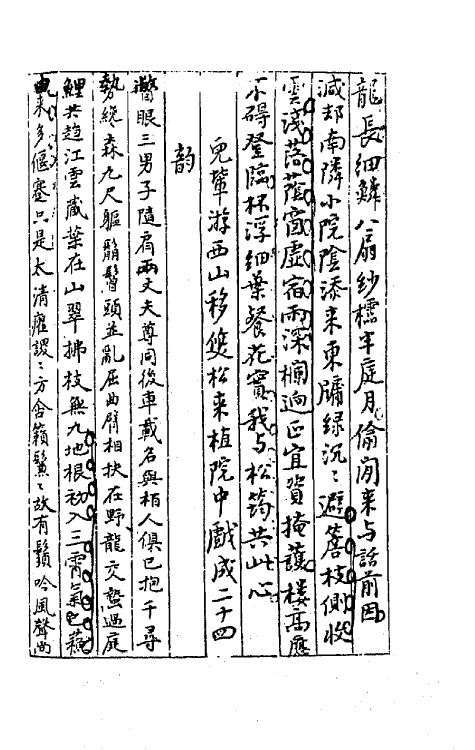 龍長細鱗八扇紗櫺半庭月偷閒来与話前因
減却南隣小院陰添来東牗緑沉〻避簷枝側收
雲淺落蔭窗虚宿雨深欄逈正宜資掩護楼高應
不碍登臨杯浮細葉餐花實我与松筠共此心
兒輩游西山移雙松来植院中戲成二十四
韵
瞥眼三男子隨肩兩丈夫尊同後車載名與栢人俱已抱千尋
勢纔森九尺軀鬅鬙頭並亂屈曲臂相扶在野龍交蟄過庭
鯉共趨江雲蔵葉在山翠拂枝無九地根初入三霄氣已蘓
来多偃蹇只是太清癯謖〻方含籟鬖〻故有鬚吟風聲